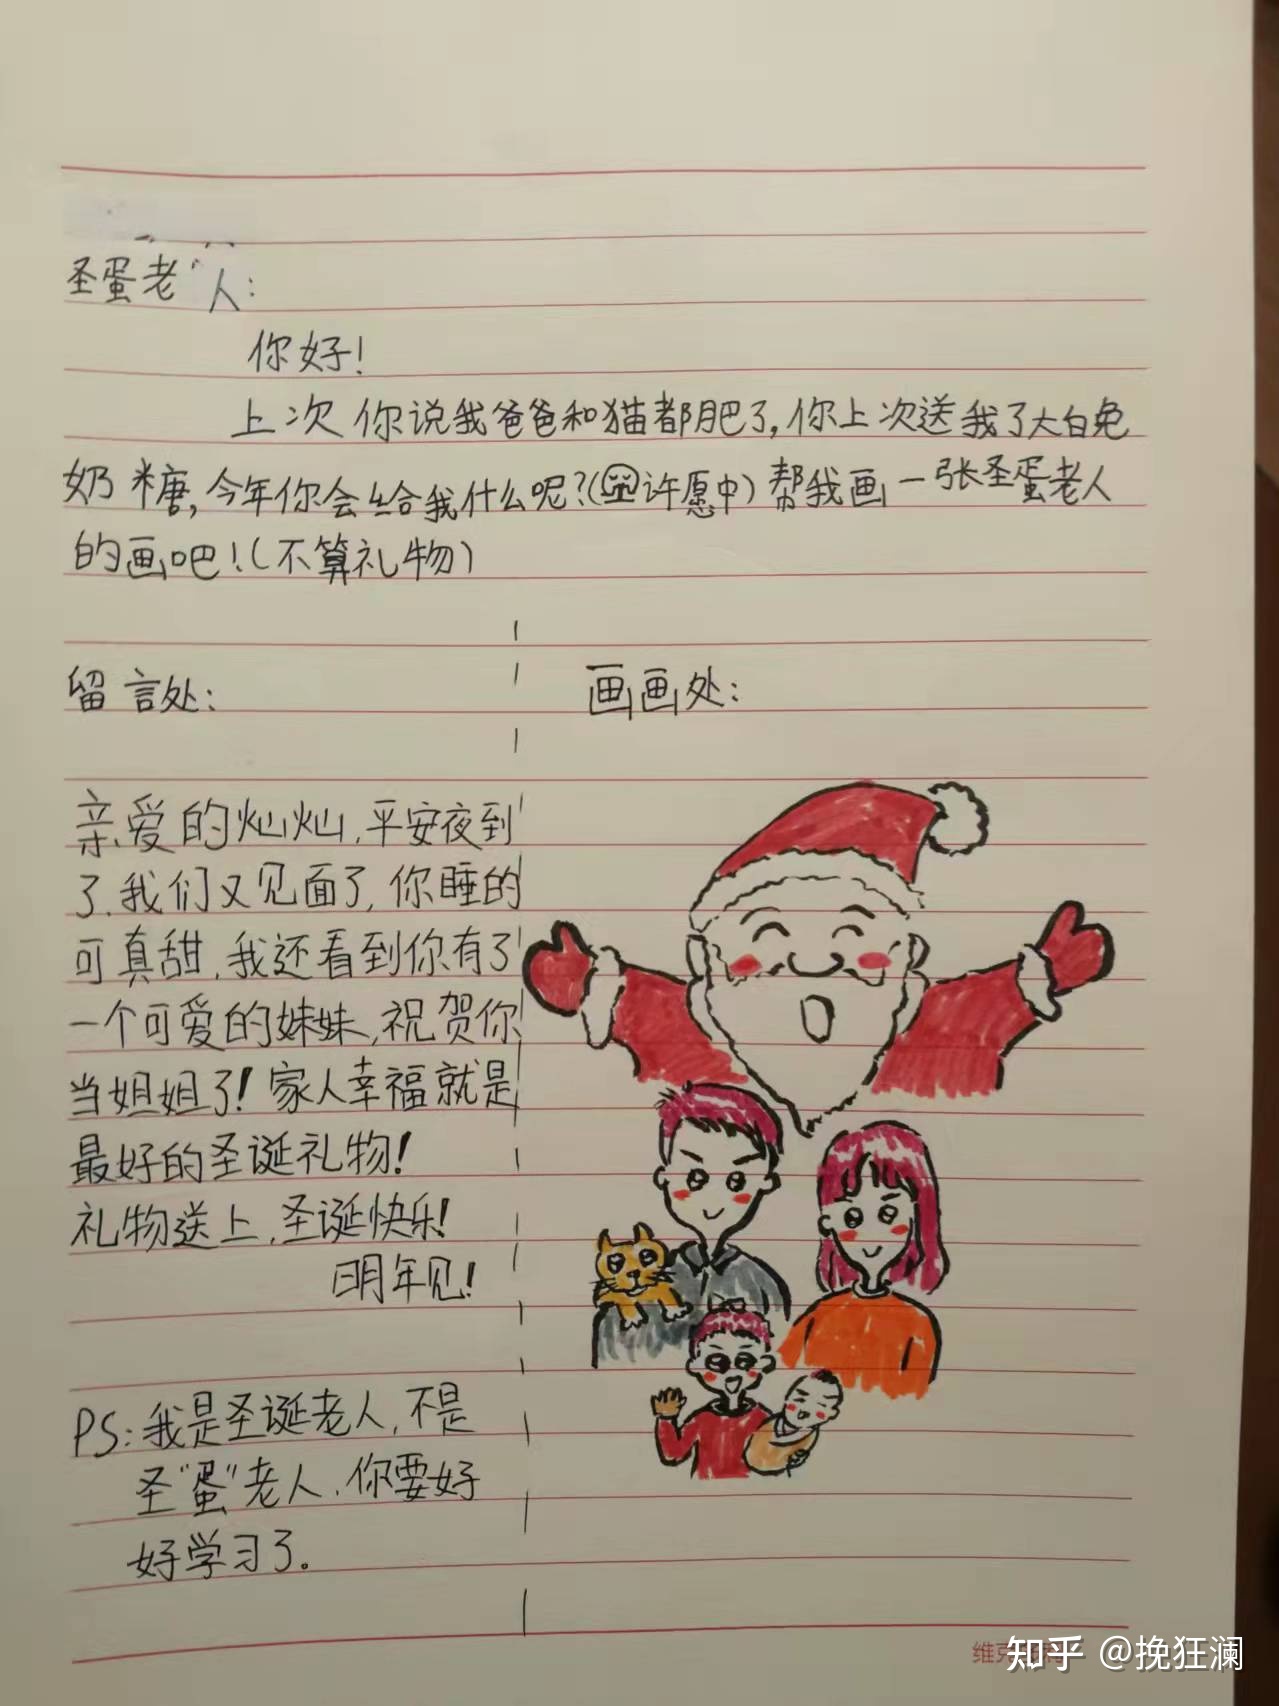 圣蛋老人:
你好!
上次你说我爸爸和猫都肥了,你上次送我了大白兔
奶糖,今年你会给我什么呢?(许愿中)帮我画一张圣蛋老人
的画吧!(不算礼物)
留言处:
画画处:
亲爱的灿灿,平安夜到
了.我们又见面了,你睡的
可真甜,我还看到你有了
一个可爱的妹妹,祝贺你
当姐姐了!家人幸福就是
最好的圣诞礼物!
礼物送上,圣诞快乐!
明年见!
PS:我是圣诞老人,不是
圣"蛋"老人,你要好
好学习了。
知乎 @挽狂澜